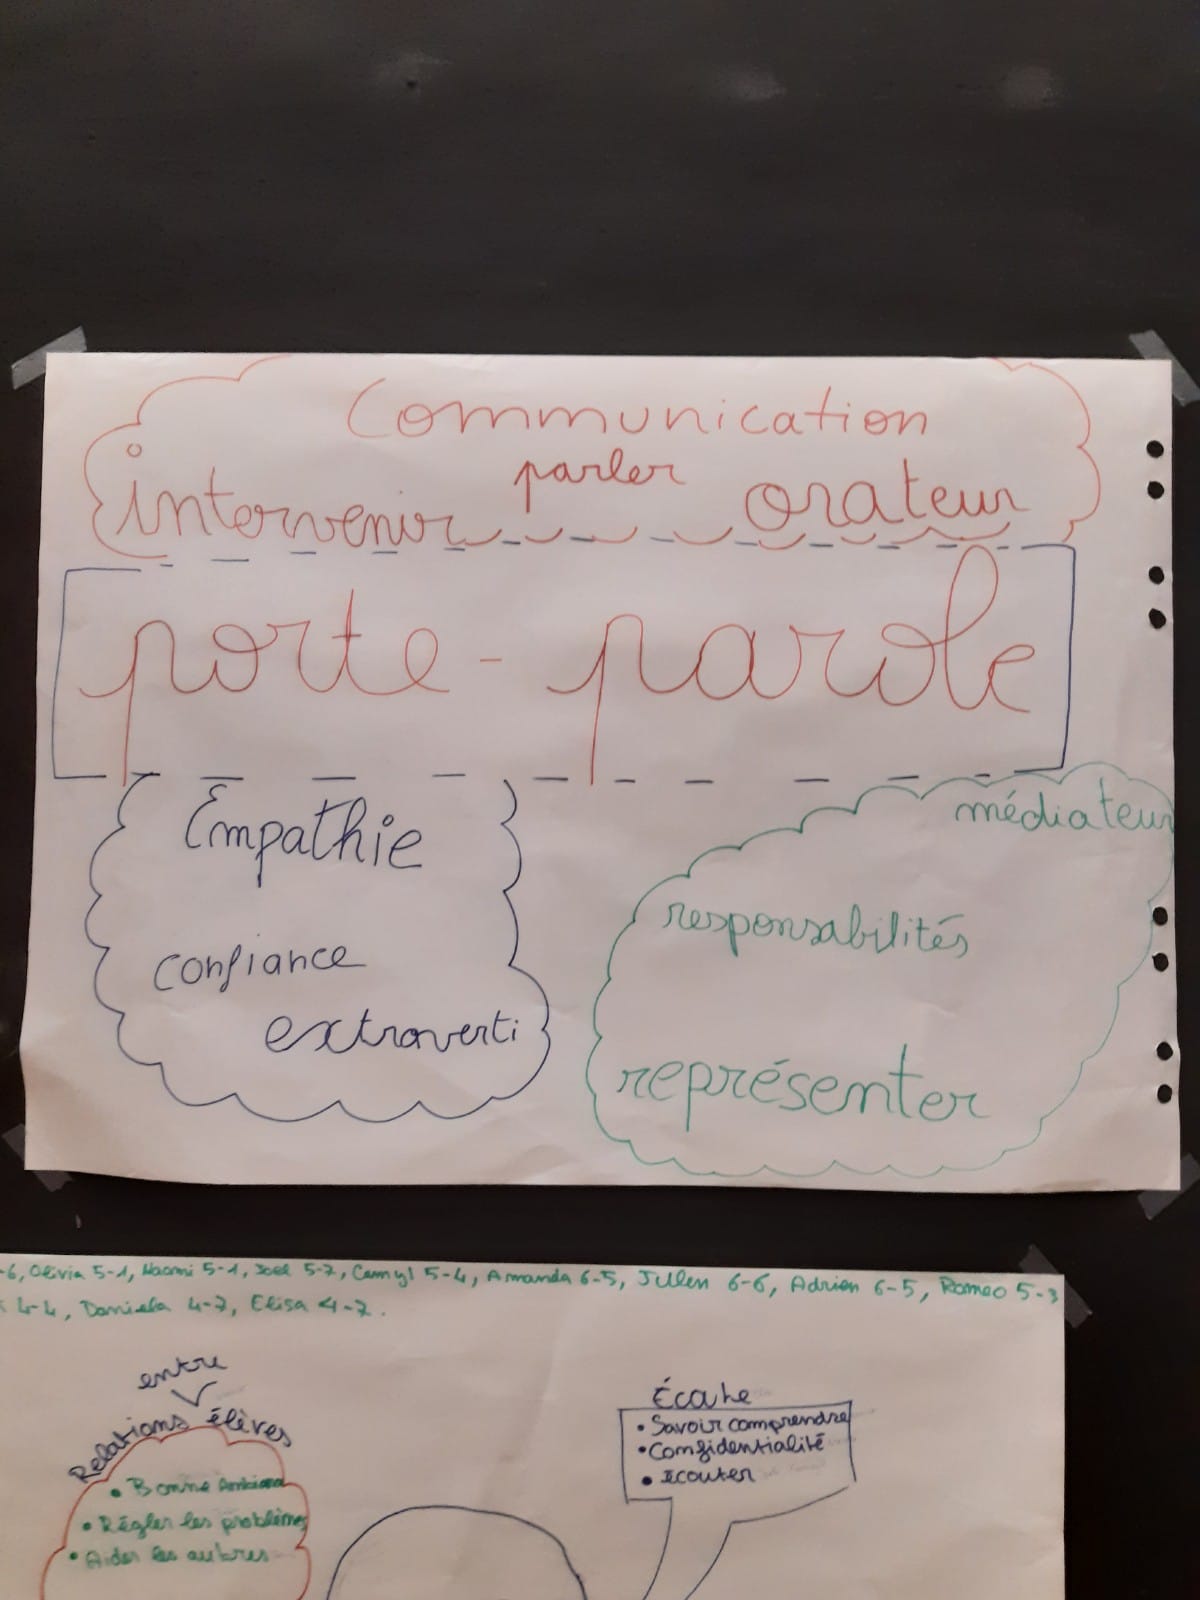 Communication
parler
intervenir orateur
porte-parole
Empathie
confiance
extraverti
médiateur
responsabilités
représenter
-6, Olivia 5-1, Naomi 5-1, Joel 5-7, Camyl 5-4, Amanda 6-5, Julien 6-6, Adrien 6-5, Romeo 5-3
4-4, Daniela 4-7, Elisa 4-7.
entre
Relations élèves
• Bonne
• Régler les problèmes
• Aider les autres
Écoute
• Savoir comprendre
• Confidentialité
• Écouter